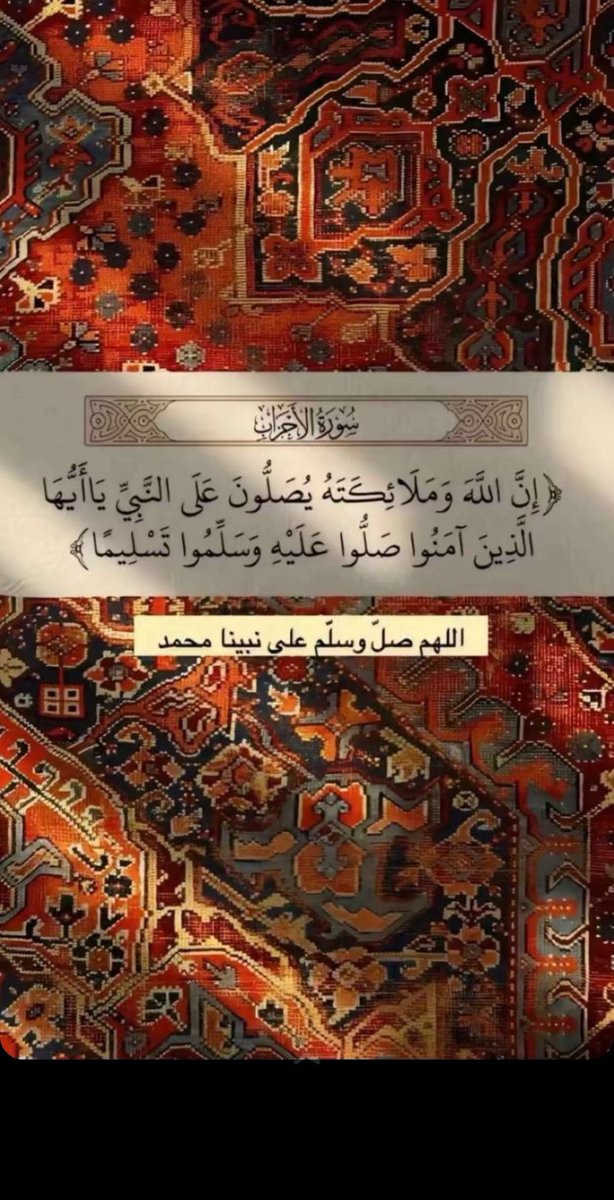 سُورَةُ الأَحْزَاب
﴿إِنَّ اللَّهَ وَمَلَائِكَتَهُ يُصَلُّونَ عَلَى النَّبِيِّ يَاأَيُّهَا
الَّذِينَ آمَنُوا صَلُّوا عَلَيْهِ وَسَلِّمُوا تَسْلِيمًا﴾
اللهم صلّ وسلّم على نبينا محمد